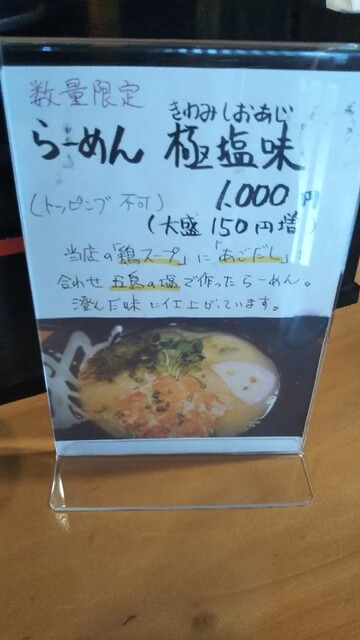 数量限定
きわみしおあじ
らーめん 極塩味
(トッピング 不可) 1,000円
(大盛150円増)
当店の「鶏スープ」に「あごだし」を
合わせ五島の塩で作ったらーめん。
澄んだ味に仕上がっています。